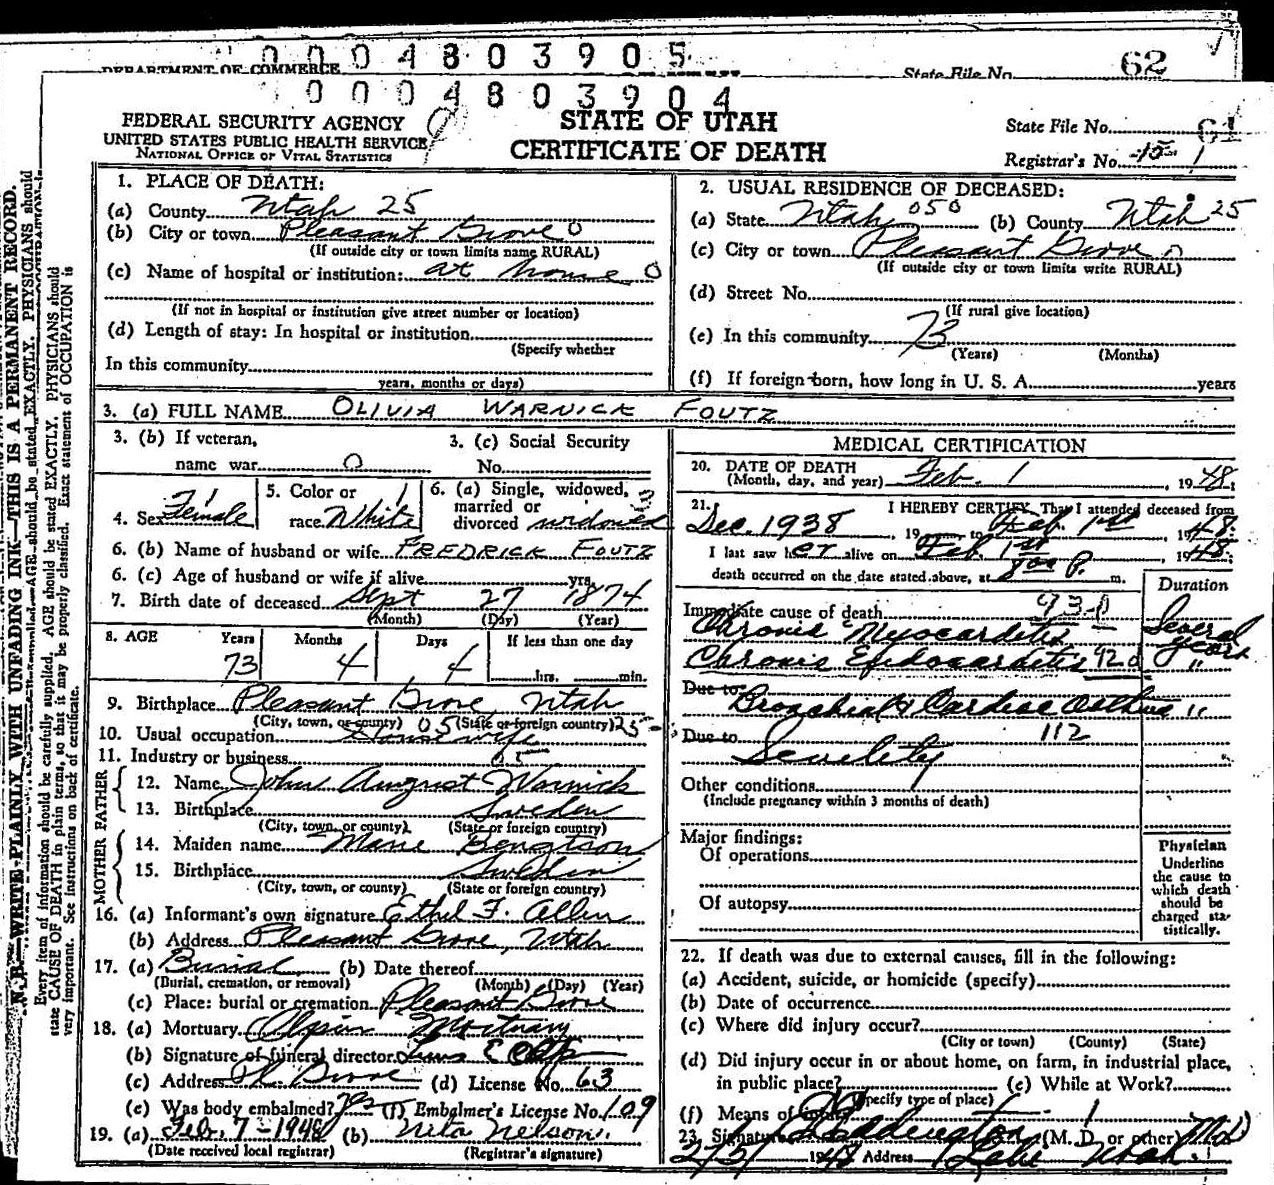 0004803905
DEPARTMENT OF COMMERCE
State File No. 62
0004803904
FEDERAL SECURITY AGENCY
UNITED STATES PUBLIC HEALTH SERVICE
NATIONAL OFFICE OF VITAL STATISTICS
STATE OF UTAH
CERTIFICATE OF DEATH
State File No. 61
Registrar's No. 15 1
N. B.—WRITE PLAINLY WITH UNFADING INK—THIS IS A PERMANENT RECORD.
Every item of information should be carefully supplied. AGE should be stated EXACTLY. PHYSICIANS should
state CAUSE OF DEATH in plain terms, so that it may be properly classified. Exact statement of OCCUPATION is
very important. See instructions on back of certificate.
1. PLACE OF DEATH:
(a) County Utah 25
(b) City or town Pleasant Grove 0
(If outside city or town limits name RURAL)
(c) Name of hospital or institution: at home 0
(If not in hospital or institution give street number or location)
(d) Length of stay: In hospital or institution
(Specify whether
In this community
years, months or days)
2. USUAL RESIDENCE OF DECEASED:
(a) State Utah 050 (b) County Utah 25
(c) City or town Pleasant Grove 0
(If outside city or town limits write RURAL)
(d) Street No.
(If rural give location)
(e) In this community 73
(Years) (Months)
(f) If foreign-born, how long in U. S. A. years
3. (a) FULL NAME OLIVIA WARNICK FOUTZ
3. (b) If veteran,
name war 0
3. (c) Social Security
No.
4. Sex Female 1
5. Color or
race White 1
6. (a) Single, widowed, 3
married or
divorced widowed
6. (b) Name of husband or wife FREDRICK FOUTZ
6. (c) Age of husband or wife if alive yrs.
7. Birth date of deceased Sept 27 1874
(Month) (Day) (Year)
8. AGE Years Months Days If less than one day
73 4 4 hrs. min.
9. Birthplace Pleasant Grove Utah
(City, town, or county) 05 (State or foreign country) 25
10. Usual occupation Housewife
11. Industry or business
FATHER
12. Name John August Warnick
13. Birthplace Sweden
(City, town, or county) (State or foreign country)
MOTHER
14. Maiden name Marie Bengtson
15. Birthplace Sweden
(City, town, or county) (State or foreign country)
16. (a) Informant's own signature Ethel F. Allen
(b) Address Pleasant Grove, Utah
17. (a) Burial (b) Date thereof
(Burial, cremation, or removal) (Month) (Day) (Year)
(c) Place: burial or cremation Pleasant Grove
18. (a) Mortuary Mortuary
(b) Signature of funeral director
(c) Address Pl. Grove (d) License No. 63
(e) Was body embalmed? yes (f) Embalmer's License No. 109
19. (a) Feb. 7-1948 (b) Nita Nelson.
(Date received local registrar) (Registrar's signature)
MEDICAL CERTIFICATION
20. DATE OF DEATH
(Month, day, and year) Feb. 1, 1948;
21. I HEREBY CERTIFY, That I attended deceased from
Dec. 1938, 19 to Feb. 1st 1948.
I last saw her alive on Feb 1st 1948.
death occurred on the date stated above, at 8:00 P. m.
Duration
Immediate cause of death 93-0
Chronic Myocarditis Several years
Chronic Endocarditis 92d "
Due to Bronchial & Cardiac Asthma "
Due to 112
Senility "
Other conditions
(Include pregnancy within 3 months of death)
Major findings:
Of operations
Of autopsy
Physician
Underline
the cause to
which death
should be
charged sta-
tistically.
22. If death was due to external causes, fill in the following:
(a) Accident, suicide, or homicide (specify)
(b) Date of occurrence
(c) Where did injury occur?
(City or town) (County) (State)
(d) Did injury occur in or about home, on farm, in industrial place,
in public place? (e) While at Work?
(Specify type of place)
(f) Means of injury
23. Signature (M. D. or other) MD
2/5/ 1948 Address Utah.